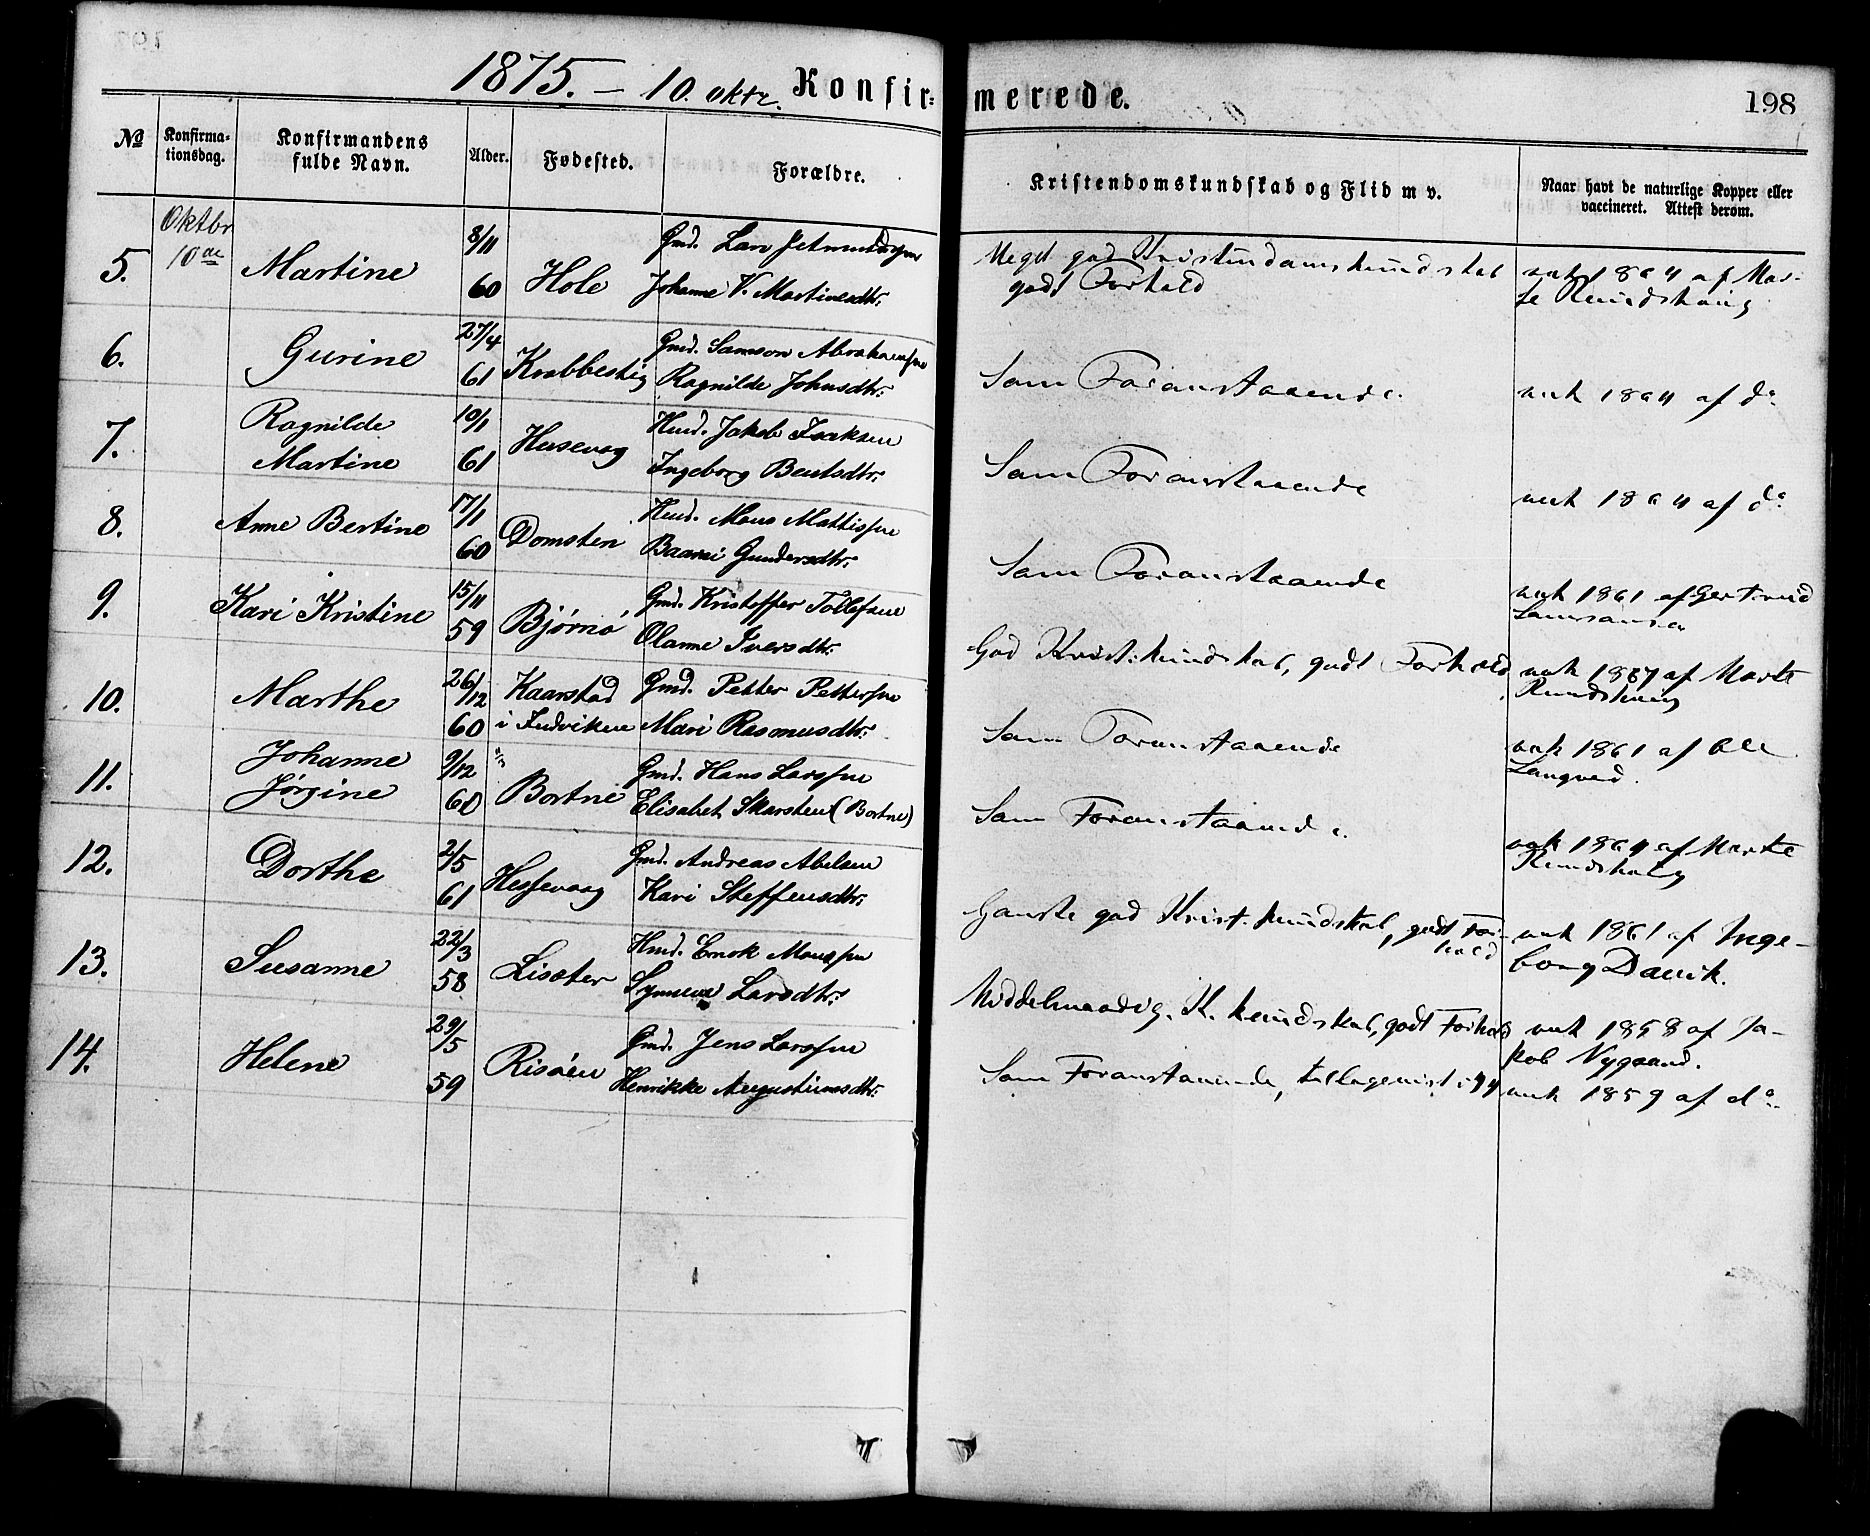 1875. – 10. oktr. Konfir-
merede.
198
No
Konfirma-
tionsdag.
Konfirmandens
fulde Navn.
Alder.
Fødested.
Forældre.
Kristendomskundskab og Flid m v.
Naar havt de naturlige Kopper eller
vaccineret. Attest derom.
Oktbr
10de
5.
Martine
8/11
60
Hole
Gmd. Lars
Johanne V. Martinesdtr.
Meget god Kristendomskundskab
godt Forhold
vak 1864 af Mar-
te Rundshoug
6.
Gurine
27/4
61
Krabbestig
Gmd. Samson Abrahamsen
Ragnilde Johnsdtr.
Som Foranstaaende.
vak 1864 af do
7.
Ragnilde
Martine
10/1
61
Husevaag
Hmd. Jakob Isaksen
Ingeborg Bentsdtr.
Som Foranstaaende
vak 1864 af do
8.
Anne Bertine
17/1
60
Domsten
Hmd. Mons Mathissen
Gundersdtr.
Som Foranstaaende
vak 1861 af Gertrud
9.
Kari Kristine
15/11
59
Bjørnø
Gmd. Kristoffer Tollefsen
Olanne Iversdtr.
God Krist. kundskab, godt Forhold
vak 1867 af Marte
Rundshoug
10.
Marthe
26/12
60
Kaarstad
i Indviken
Gmd. Petter Pettersen
Mari Rasmusdtr.
Som Foranstaaende
vak 1861 af Ole
Langved.
11.
Johanne
Jørgine
9/12
60
Bortne
Gmd. Hans Larssen
Elisabet Skarsten (Bortne)
Som Foranstaaende.
vak 1864 af Marte
Rundshoug
12.
Dorthe
2/5
61
Hessevaag
Gmd. Andreas Abelsen
Kari Steffensdtr.
Ganske god Krist. kundskab, godt For-
hold
vak 1861 af Inge-
borg Davik.
13.
Susanne
22/3
58
Liseter
Hmd. Enok Monssen
Synneve Larsdtr.
Middelmaadig. K. kundskab, godt Forhold
vak 1858 af Ja-
kob Nygaard.
14.
Helene
29/5
59
Risøen
Gmd. Jens Larssen
Henrikke Augustinusdtr.
Som Foranstaaende,
vak 1859 af do